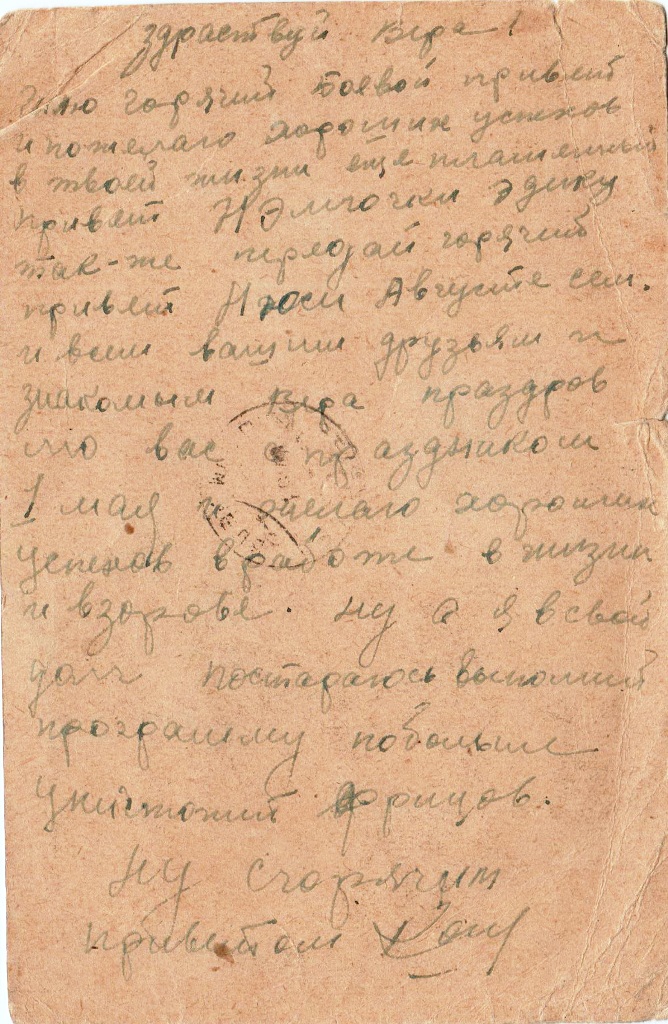 здраствуй Вера!
Шлю горячий боевой привет
и пожелаю хороших успехов
в твоей жизни еще пламенный
привет Нэлючки Эдику
так-же передай горячий
привет Нюси Августе сем.
и всем вашим друзьям и
знакомым Вера праздров
ляю вас с праздником
1 мая и желаю хороших
успехов в работе в жизни
и взоровье. ну а я в свой
долг постараюсь выполнит
программу побольше
уничтожит фрицов.
Ну сгорячим
приветом